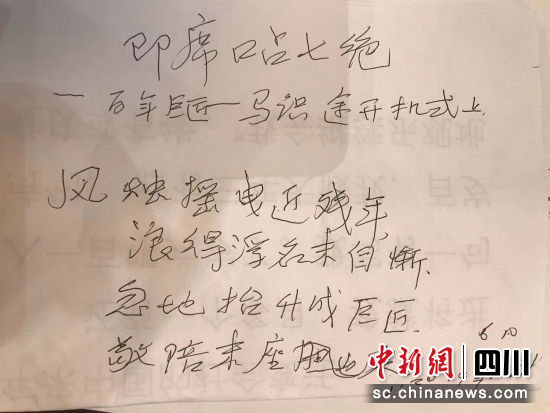 即席口占七绝
一百年巨匠一马识途开机式上
风烛摇曳近残年,
浪得浮名未自惭.
忽地抬升成巨匠.
敬陪末座
中新網 四川
sc.chinanews.com.cn